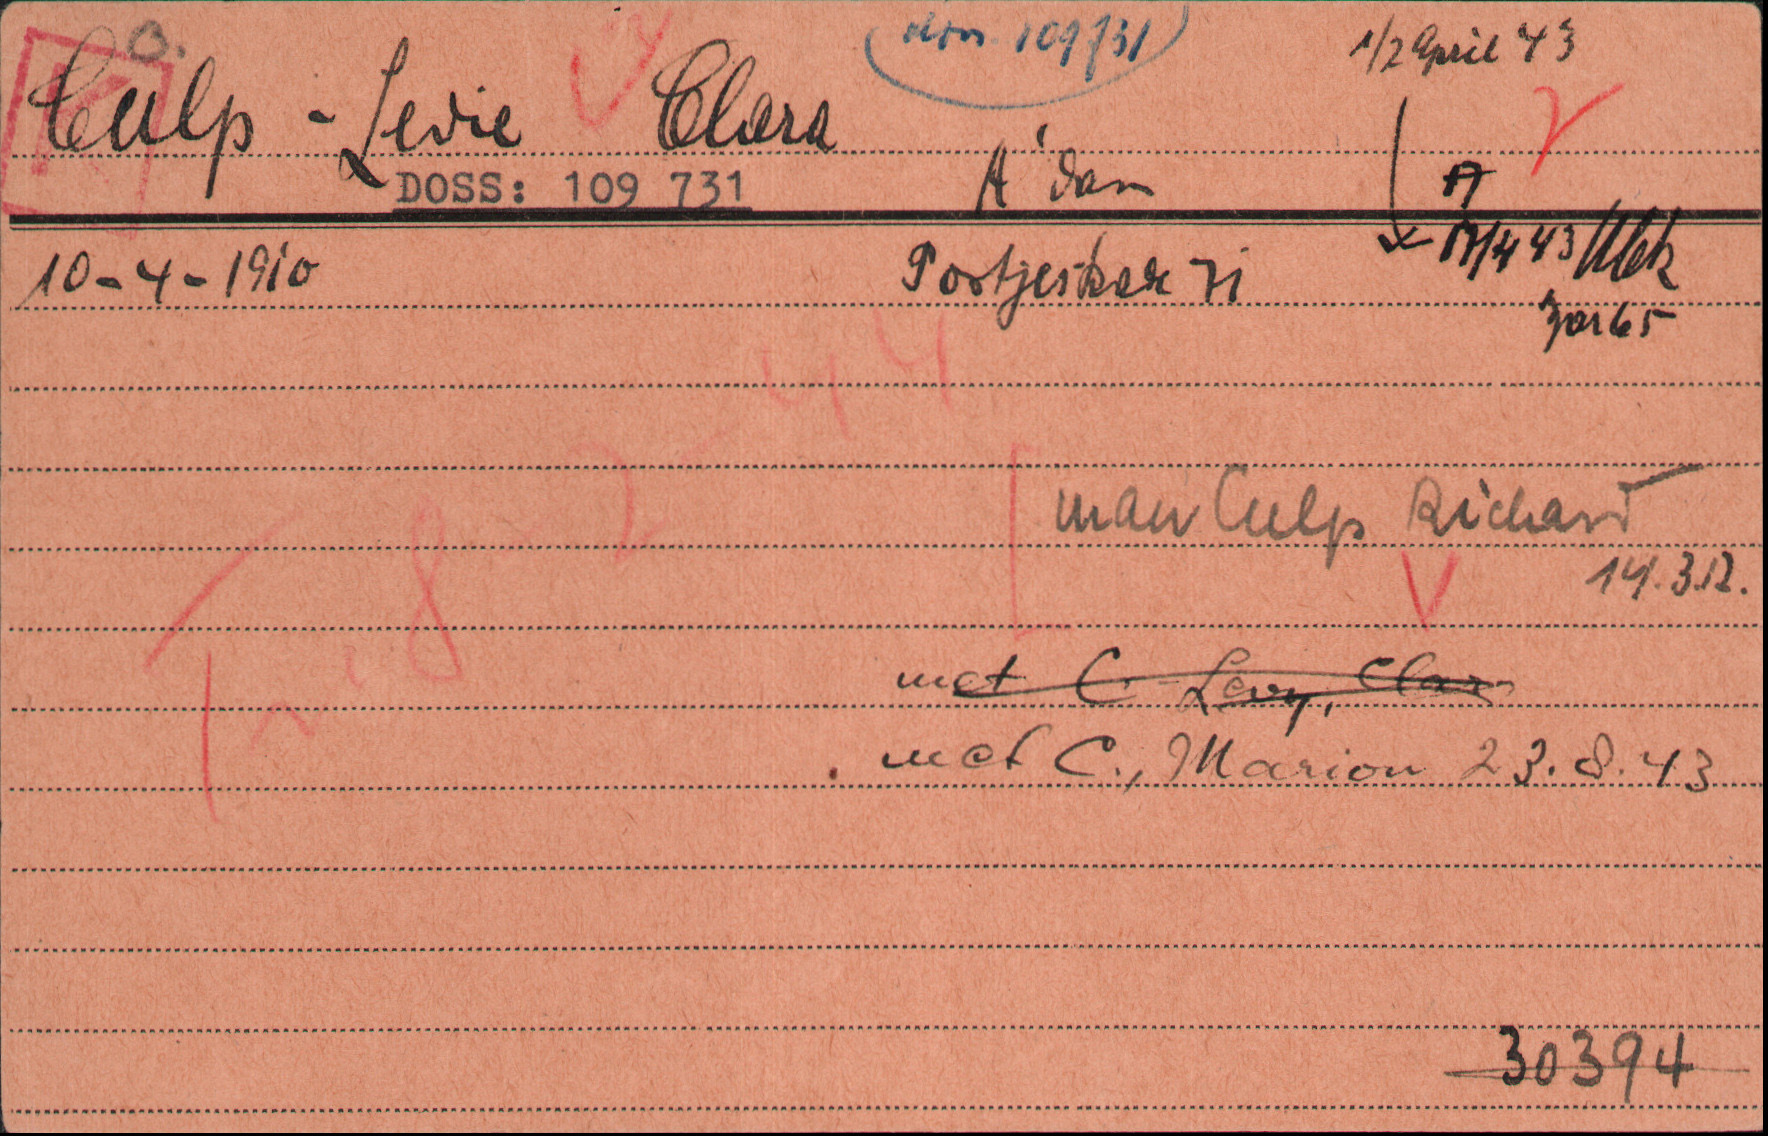 Culp - Levie Clara
K
O.
dos. 109731
1/2 April 43
DOSS: 109 731
A'dam
10-4-1910
17/4 43
Bar 65
8-2-44
Culp Richard
14.3.12.
met C. Levy, Clara
met C., Marion 23.8.43
30394